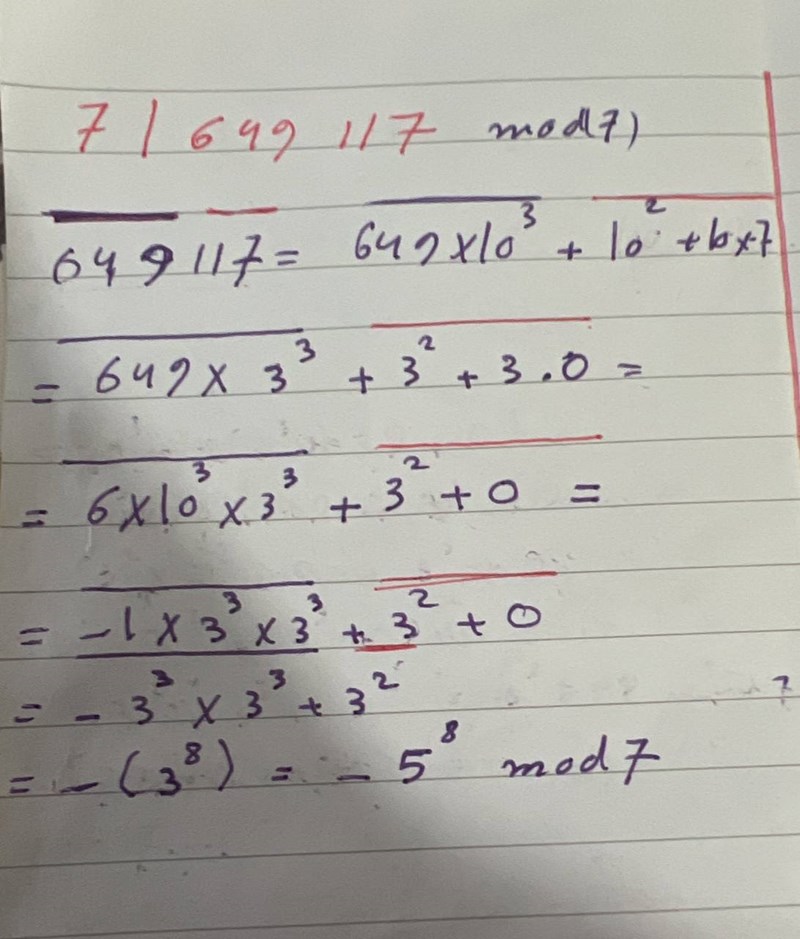 7 | 649 117 mod 7)
649 117 = 649 x 10³ + 10² + 10 x 7
= 649 x 3³ + 3² + 3 . 0 =
= 6 x 10³ x 3³ + 3² + 0 =
= -1 x 3³ x 3³ + 3² + 0
= - 3³ x 3³ + 3²
= - (3⁸) = - 5⁸ mod 7